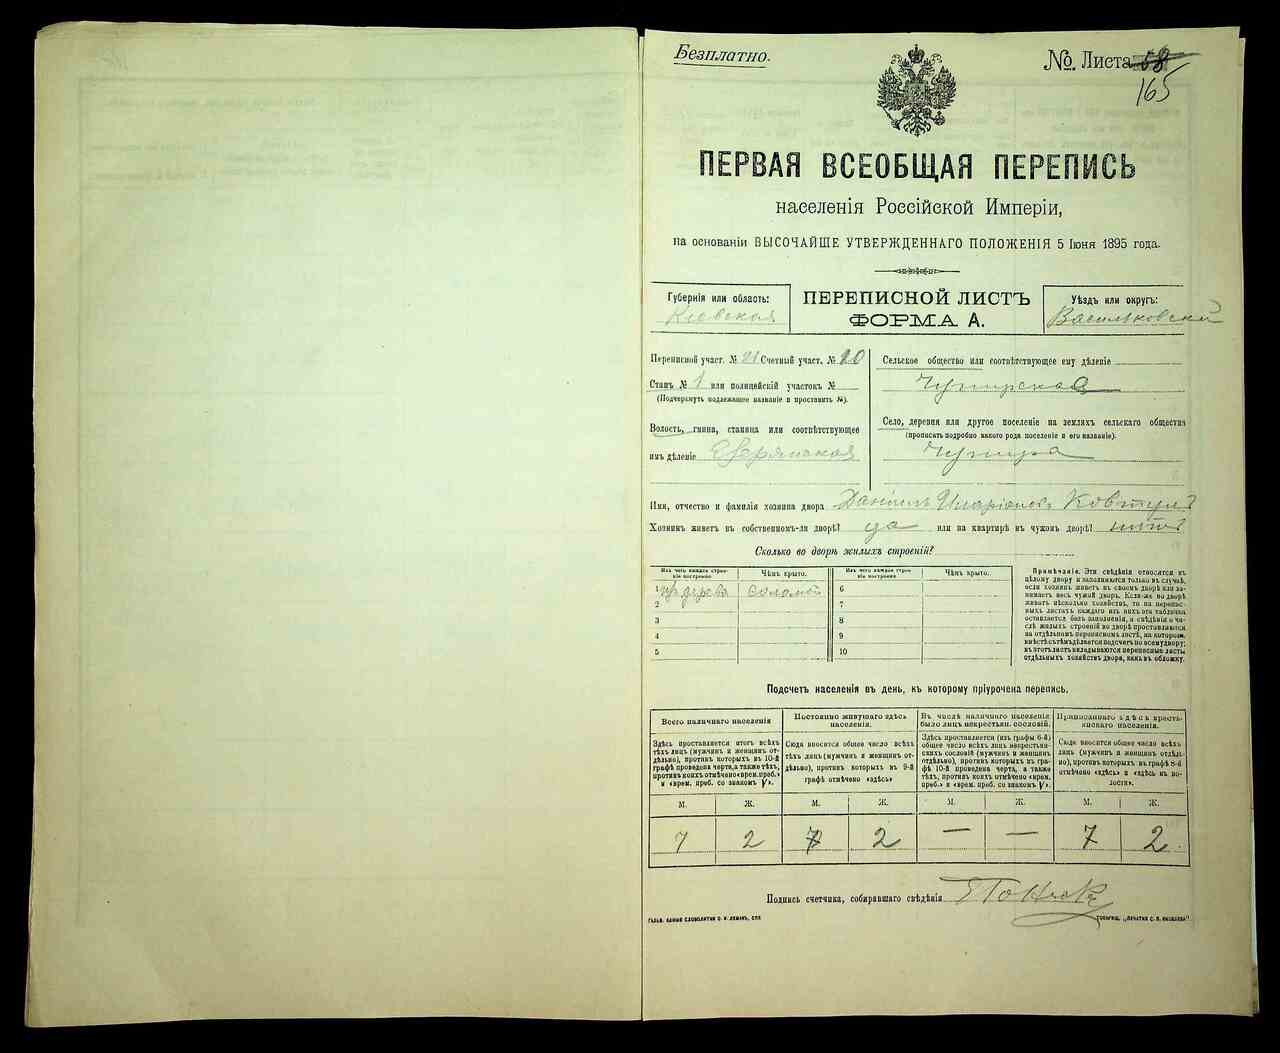 Безплатно.
№ Листа 58
165
ПЕРВАЯ ВСЕОБЩАЯ ПЕРЕПИСЬ
населенія Россійской Имперіи,
на основаніи ВЫСОЧАЙШЕ УТВЕРЖДЕННАГО ПОЛОЖЕНІЯ 5 Іюня 1895 года.
Губернія или область:
Кіевская
ПЕРЕПИСНОЙ ЛИСТЪ
ФОРМА А.
Уѣздъ или округъ:
Васильковскій
Переписной участ. № 21 Счетный участ. № 20
Станъ № 1 или полицейскій участокъ №
(Подчеркнуть подлежащее названіе и проставить №).
Волость, гмина, станица или соотвѣтствующее
имъ дѣленіе
Сельское общество или соотвѣтствующее ему дѣленіе
Чупирская
Село, деревня или другое поселеніе на земляхъ сельскаго общества
(прописать подробно какого рода поселеніе и его названіе).
Чупира
Имя, отчество и фамилія хозяина двора Даніилъ Иларіоновъ Ковтунъ
Хозяинъ живетъ въ собственномъ-ли дворѣ? да или на квартирѣ въ чужомъ дворѣ? нѣтъ
Сколько во дворѣ жилыхъ строеній?
Изъ чего каждое строе-
ніе построено
Чѣмъ крыто.
Изъ чего каждое строе-
ніе построено
Чѣмъ крыто.
1 изъ дерева соломой 6
2 7
3 8
4 9
5 10
Примѣчаніе. Эти свѣдѣнія относятся къ
цѣлому двору и заполняются только въ случаѣ,
если хозяинъ живетъ въ своемъ дворѣ или за-
нимаетъ весь чужой дворъ. Если-же во дворѣ
живетъ нѣсколько хозяйствъ, то на перепис-
ныхъ листахъ каждаго изъ нихъ эта табличка
оставляется безъ заполненія, а свѣдѣнія о чи-
слѣ жилыхъ строеній во дворѣ проставляются
на отдѣльномъ переписномъ листѣ, на которомъ
вмѣстѣ съ тѣмъ дѣлается подсчетъ по всему двору;
въ этотъ листъ вкладываются переписные листы
отдѣльныхъ хозяйствъ двора, какъ въ обложку.
Подсчетъ населенія въ день, къ которому пріурочена перепись.
Всего наличнаго населенія
Здѣсь проставляется итогъ всѣхъ
тѣхъ лицъ (мужчинъ и женщинъ от-
дѣльно), противъ которыхъ въ 10-й
графѣ проведена черта, а также тѣхъ,
противъ коихъ отмѣчено «врем. преб.»
и «врем. преб. со знакомъ V».
Постоянно живущаго здѣсь
населенія.
Сюда вносится общее число всѣхъ
тѣхъ лицъ (мужчинъ и женщинъ от-
дѣльно), противъ которыхъ въ 9-й
графѣ отмѣчено «здѣсь»
Въ числѣ наличнаго населенія
было лицъ некрестьян. сословій.
Здѣсь проставляется (изъ графы 6-й)
общее число всѣхъ лицъ некрестьян-
скихъ сословій (мужчинъ и женщинъ
отдѣльно), противъ которыхъ въ гра-
фѣ 10-й проведена черта, а также
тѣхъ, противъ коихъ отмѣчено «врем.
преб.» и «врем. преб. со знакомъ V».
Приписаннаго здѣсь кресть-
янскаго населенія.
Сюда вносится общее число всѣхъ
лицъ (мужчинъ и женщинъ отдѣль-
но), противъ которыхъ въ графѣ 8-й
отмѣчено «здѣсь» и «здѣсь въ во-
лости».
М. Ж. М. Ж. М. Ж. М. Ж.
7 2 7 2 — — 7 2
Подпись счетчика, собиравшаго свѣдѣнія
ТОВАРИЩ. „ПЕЧАТНЯ С. П. ЯКОВЛЕВА“